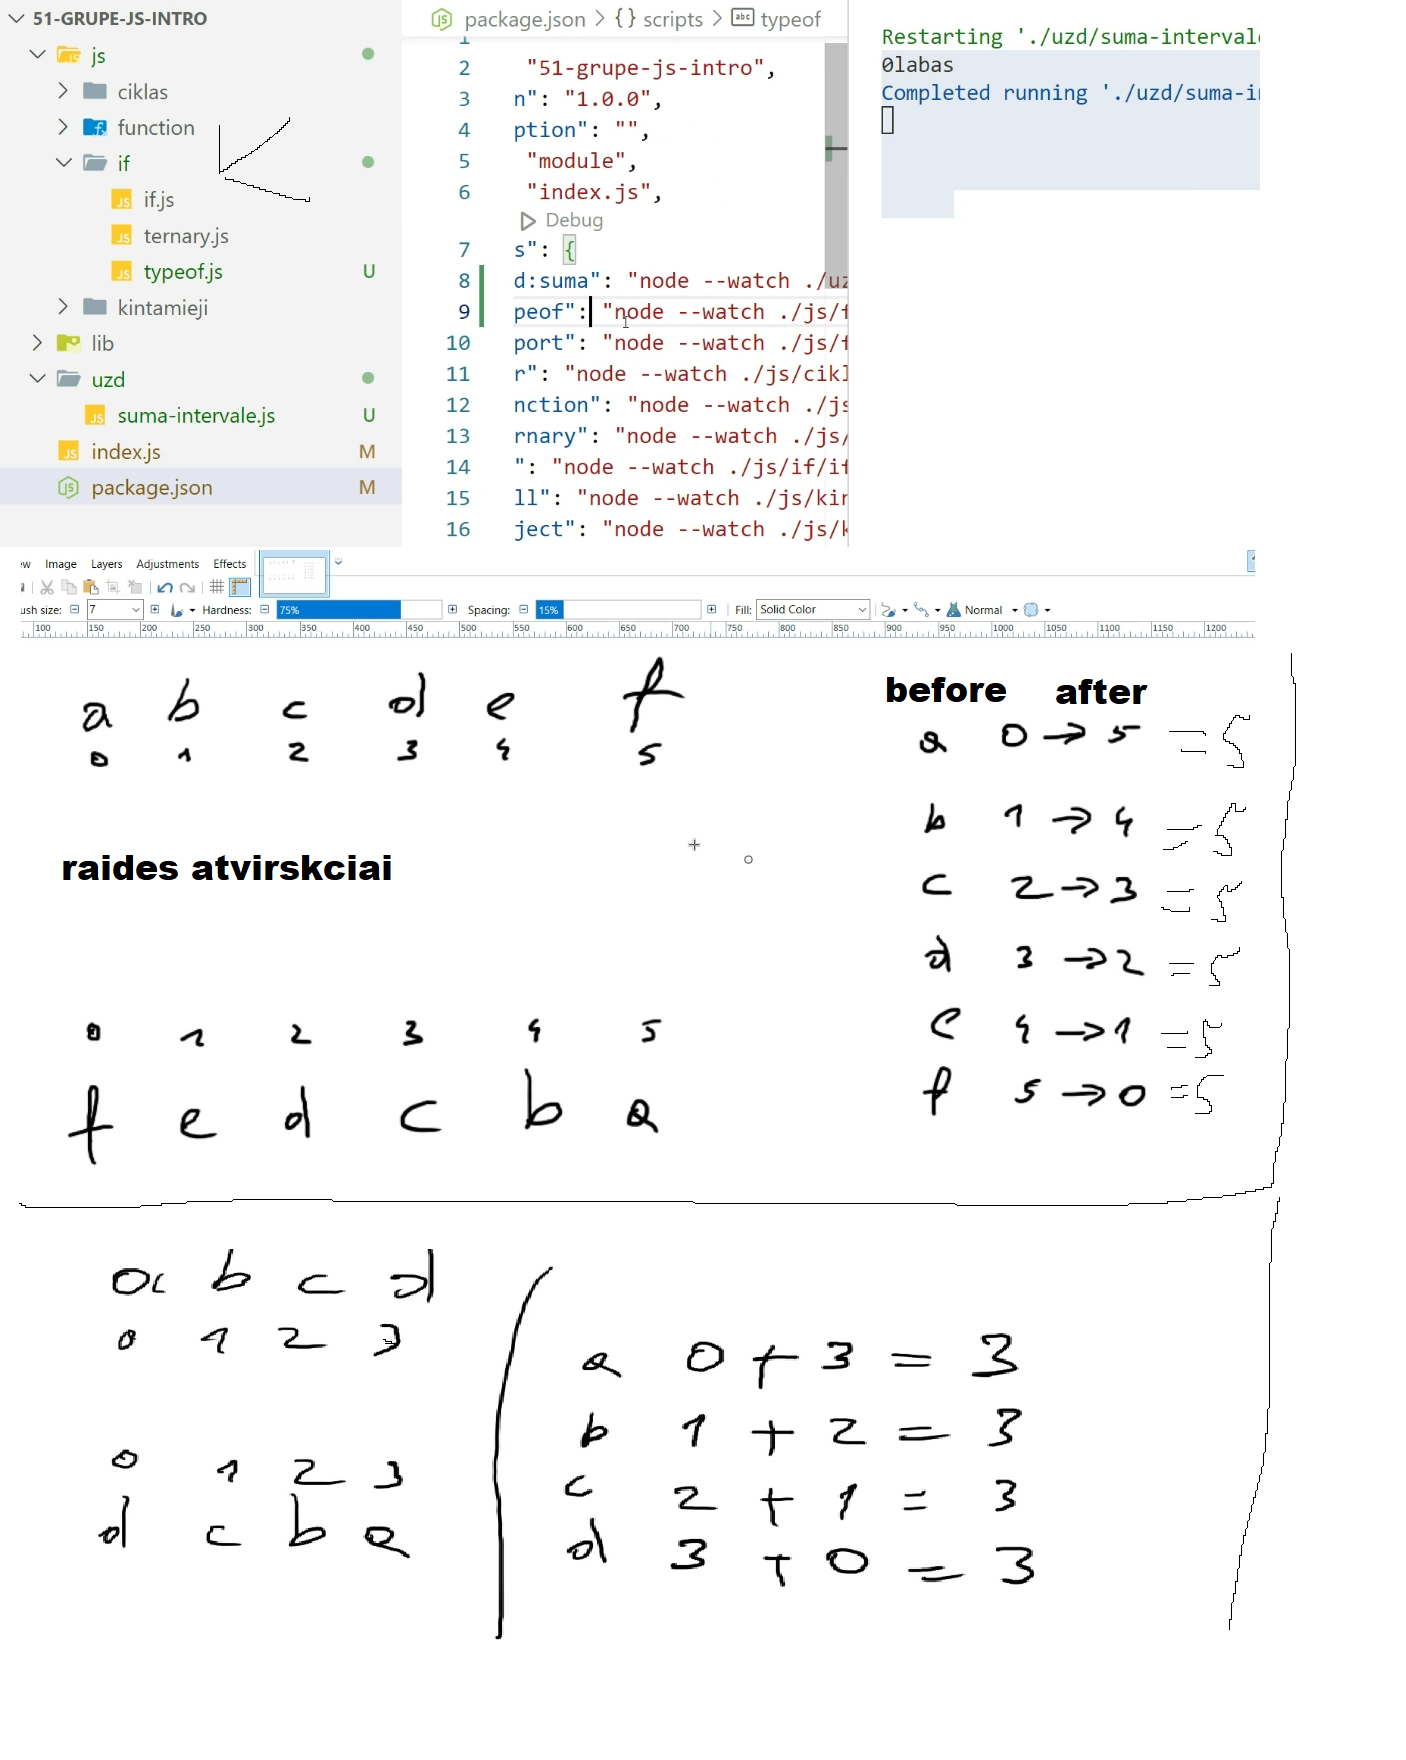 51-GRUPE-JS-INTRO
js
ciklas
function
if
if.js
ternary.js
typeof.js U
kintamieji
lib
uzd
suma-intervale.js U
index.js M
package.json M
package.json > {} scripts > abc typeof
1
2 "51-grupe-js-intro",
3 n": "1.0.0",
4 ption": "",
5 "module",
6 "index.js",
Debug
7 s": {
8 d:suma": "node --watch ./uz
9 peof": "node --watch ./js/f
10 port": "node --watch ./js/f
11 r": "node --watch ./js/cikl
12 nction": "node --watch ./js
13 rnary": "node --watch ./js/
14 ": "node --watch ./js/if/if
15 ll": "node --watch ./js/kin
16 ject": "node --watch ./js/k
Restarting './uzd/suma-intervale
0labas
Completed running './uzd/suma-in
ew Image Layers Adjustments Effects
ush size: 7 Hardness: 75% Spacing: 15% Fill: Solid Color Normal
100 150 200 250 300 350 400 450 500 550 600 650 700 750 800 850 900 950 1000 1050 1100 1150 1200
a b c d e f
0 1 2 3 4 5
raides atvirskciai
0 1 2 3 4 5
f e d c b a
before after
a 0 → 5 = 5
b 1 → 4 = 5
c 2 → 3 = 5
d 3 → 2 = 5
e 4 → 1 = 5
f 5 → 0 = 5
a b c d
0 1 2 3
0 1 2 3
d c b a
a 0 + 3 = 3
b 1 + 2 = 3
c 2 + 1 = 3
d 3 + 0 = 3